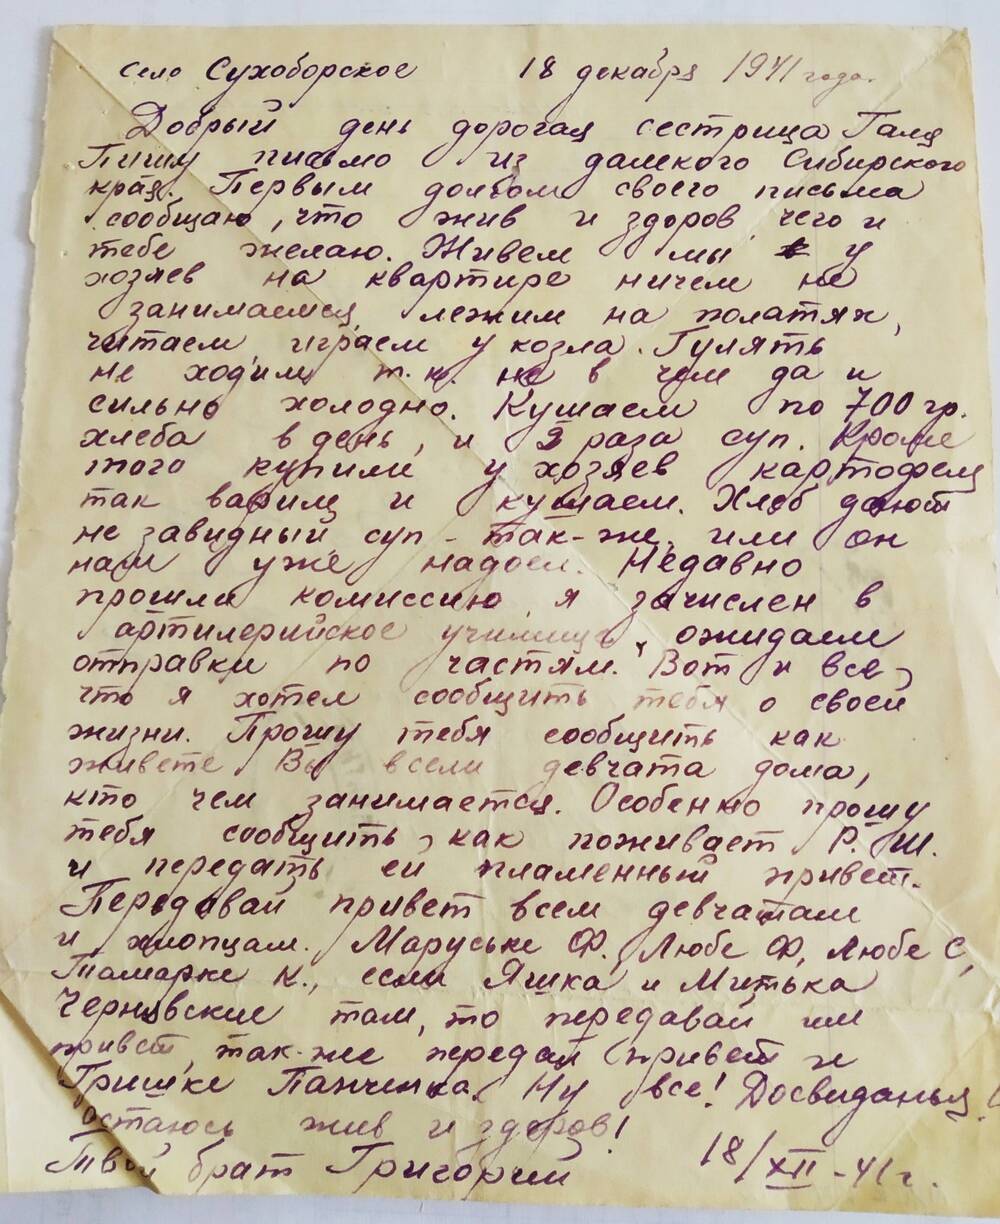 село Сухоборское 18 декабря 1941 года.
Добрый день дорогая сестрица Галя
Пишу письмо из далекого Сибирского
края. Первым долгом своего письма
сообщаю, что жив и здоров чего и
тебе желаю. Живем мы у
хозяев на квартире ничем не
занимаемся, лежим на полатях,
читаем, играем у козла. Гулять
не ходим т.к. не в чем да и
сильно холодно. Кушаем по 700 гр.
хлеба в день, и 2 раза суп. Кроме
того купили у хозяев картофель
так варим и кушаем. Хлеб дают
не завидный суп - так-же, или он
нам уже надоел. Недавно
прошли комиссию, я зачислен в
артилерийское училище, ожидаем
отправки по частям. Вот и все,
что я хотел сообщить тебя о своей
жизни. Прошу тебя сообщить как
живете Вы всели девчата дома,
кто чем занимается. Особенно прошу
тебя сообщить, как поживает Р. Ш.
и передать ей пламенный привет.
Передавай привет всем девчатам
и хлопцам. Маруське Ф. Любе Ф, Любе С,
Тамарке К., если Яшка и Митька
Чернявские там, то передавай им
привет, так-же передай привет и
Гришке Панченка. Ну все! Досвиданья!
остаюсь жив и здоров!
Твой брат Григорий 18/XII-41г.